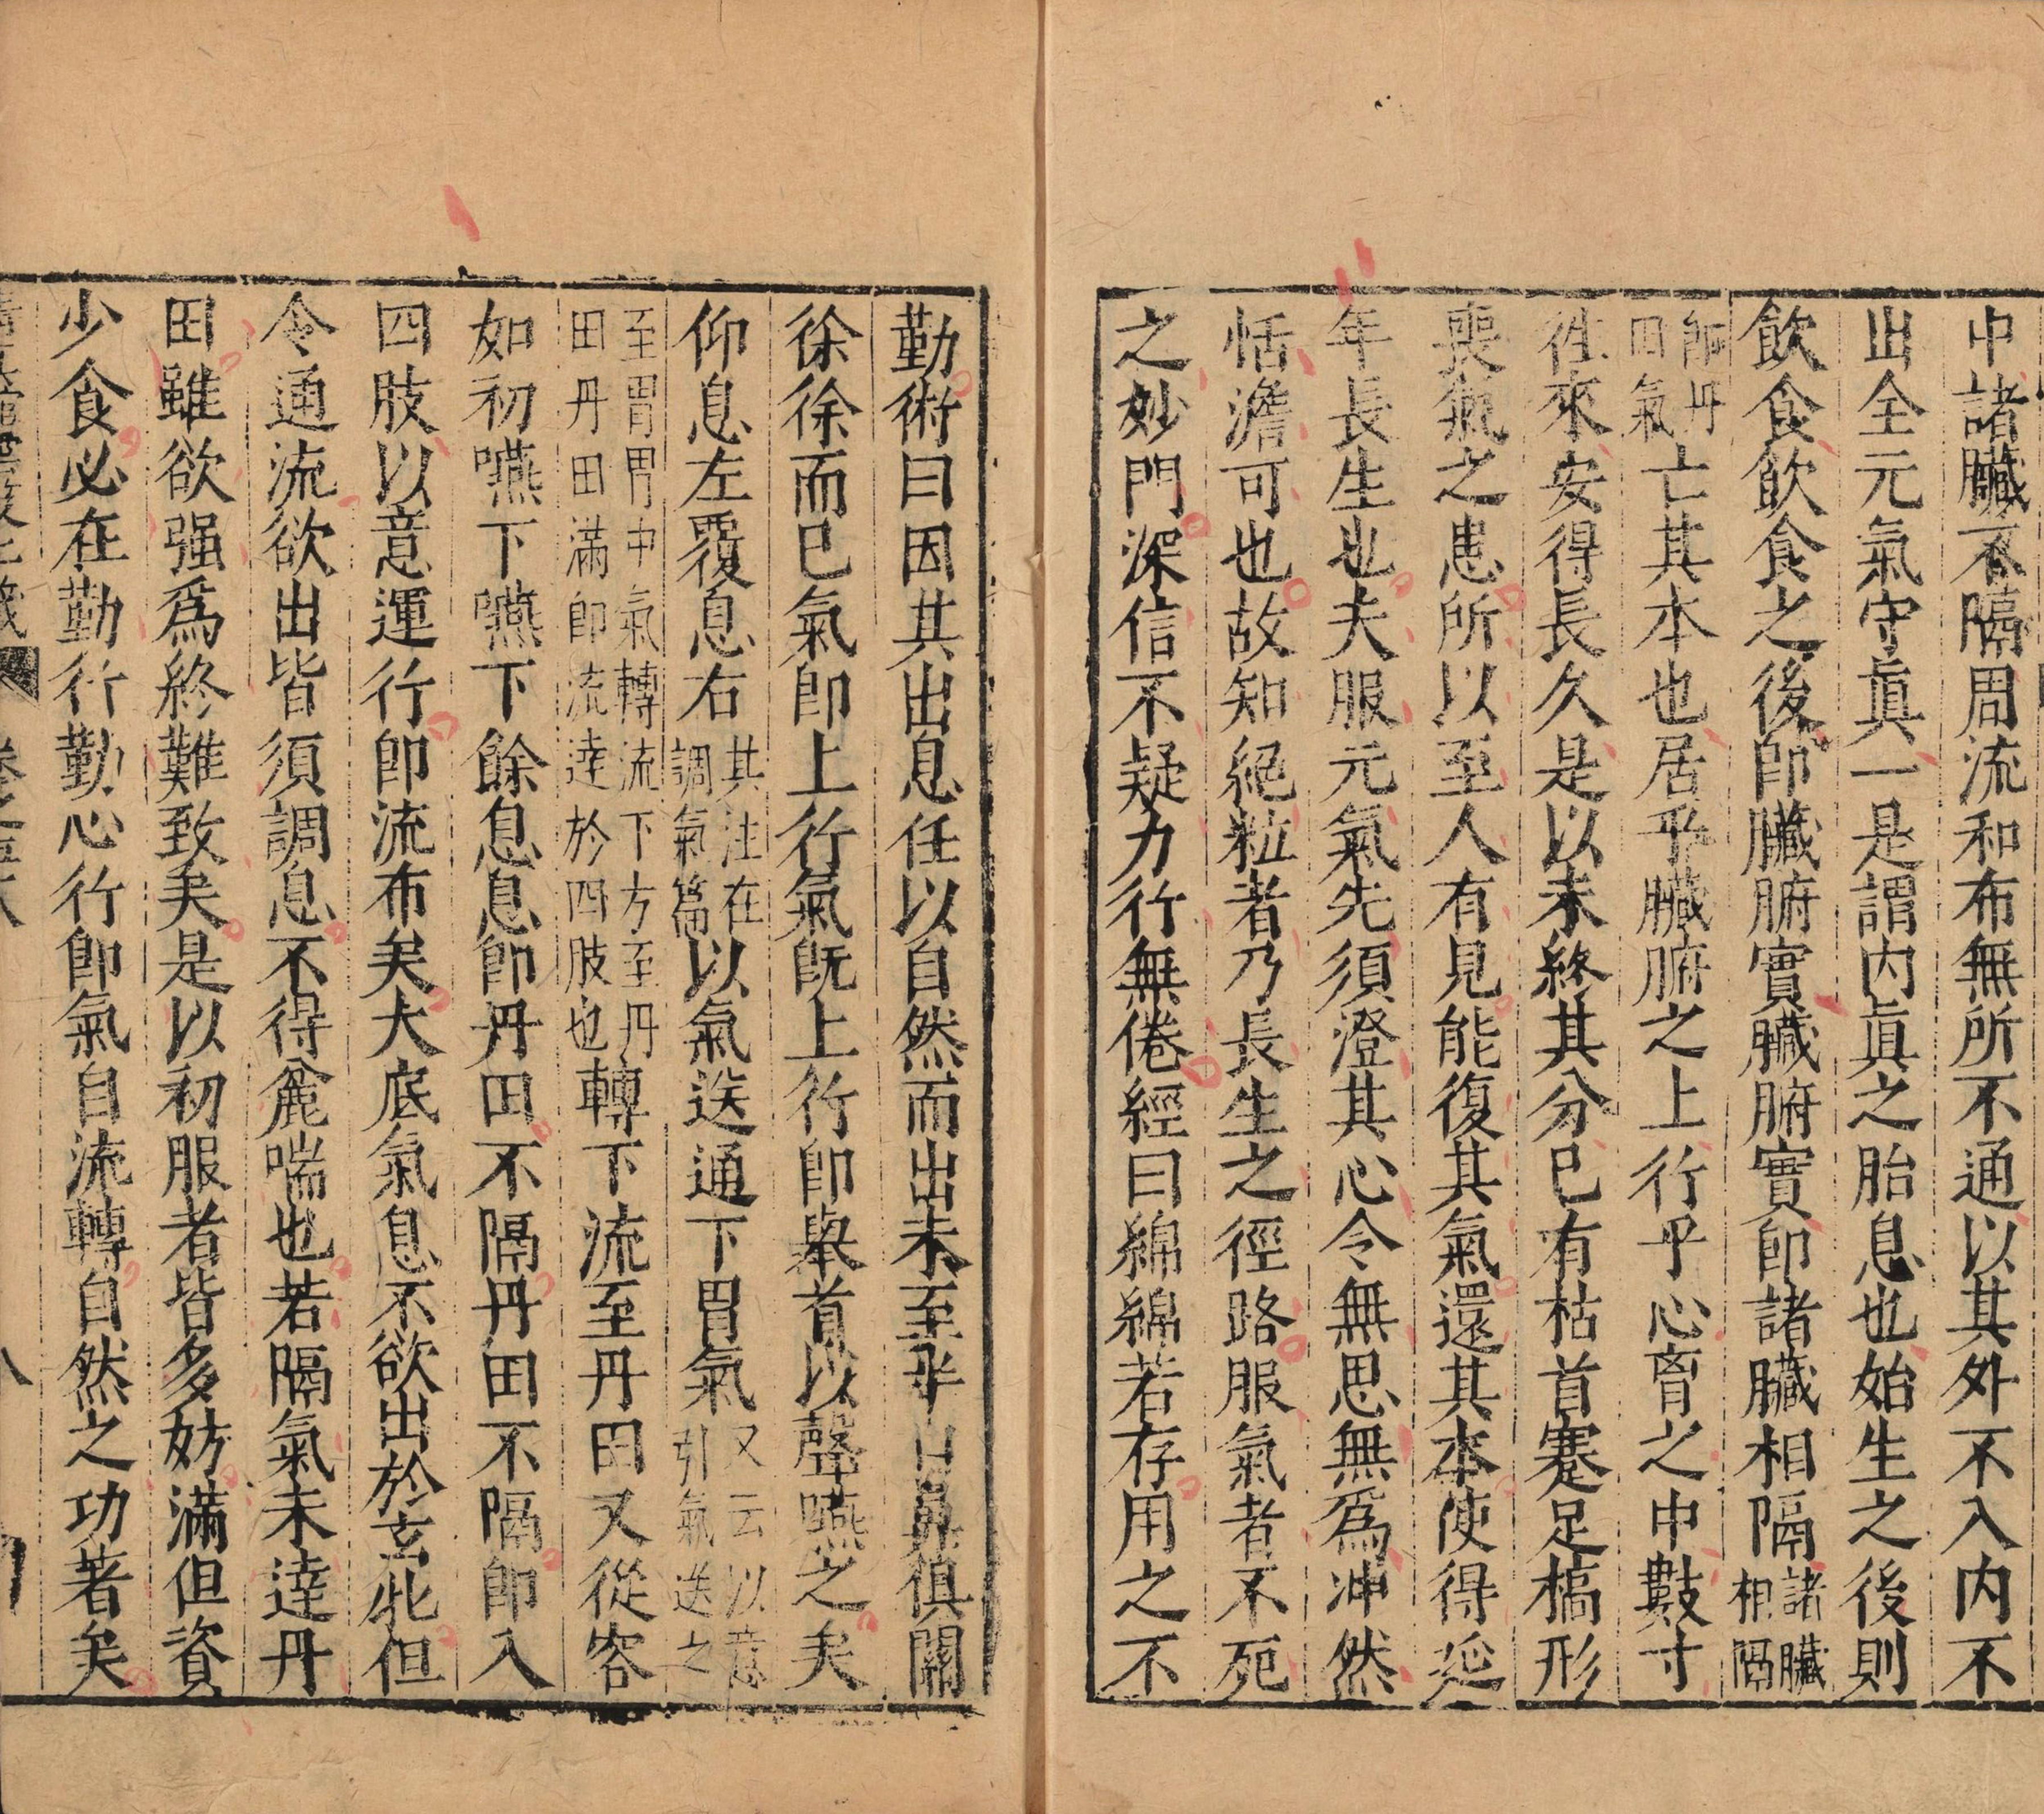 中諸臟不隔周流和布無所不通以其外不入内不
出全元氣守眞一是謂内眞之胎息也始生之後則
飲食飲食之後即臟腑實臟腑實即諸臟相隔諸臟相隔
即丹田氣亡其本也居乎臟腑之上行乎心育之中數寸
徃來安得長久是以未終其分已有枯首蹇足槁形
喪氣之患所以至人有見能復其氣還其本使得延
年長生也夫服元氣先須澄其心令無思無爲冲然
恬澹可也故知絕粒者乃長生之徑路服氣者不死
之妙門深信不疑力行無倦經曰綿綿若存用之不
勤術曰因其出息任以自然而出未至半口鼻俱關
徐徐而已氣即上行氣既上行即舉首以聲嚥之矣
仰息左覆息右其注在調氣篇以氣送通下胃氣又云以意引氣送之
至胃胃中氣轉流下方至丹田丹田滿即流達於四肢也轉下流至丹田又從容
如初嚥下嚥下餘息息即丹田不隔丹田不隔即入
四肢以意運行即流布矣大底氣息不欲出於玄牝但
令通流欲出皆須調息不得麄喘也若隔氣未達丹
田雖欲强爲終難致矣是以初服者皆多妨滿但資
少食必在勤行勤心行即氣自流轉自然之功著矣
八